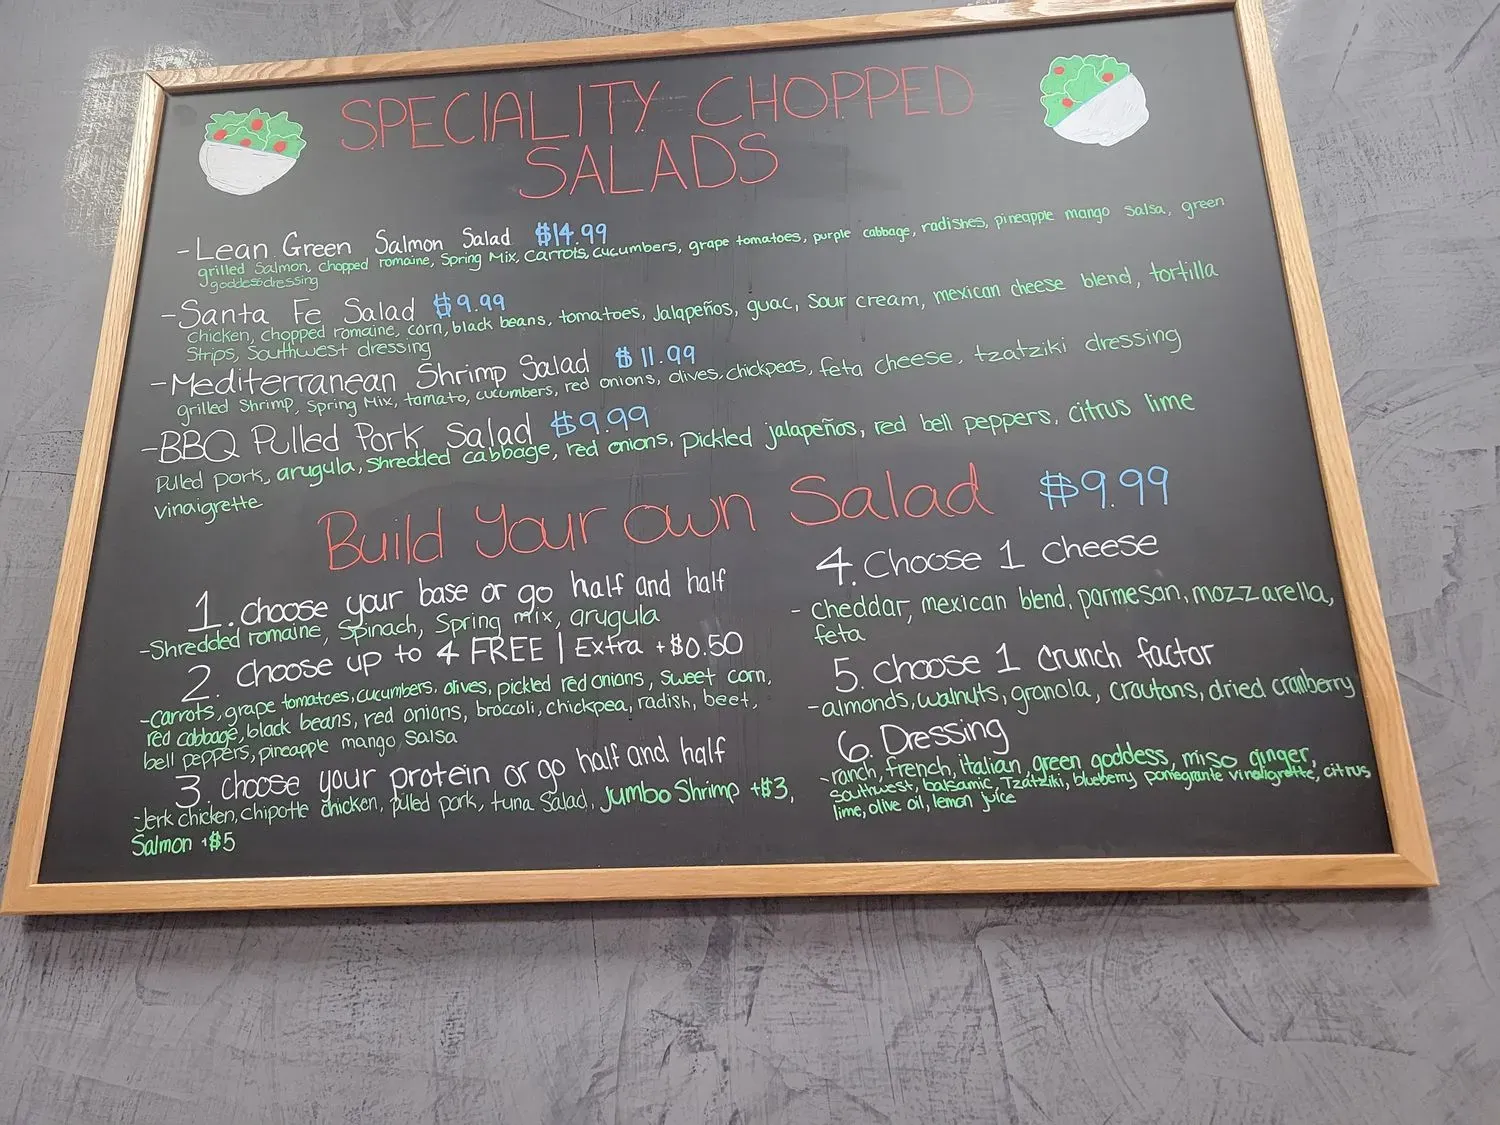 SPECIALITY CHOPPED
SALADS
-Lean Green Salmon Salad $14.99
grilled Salmon, chopped romaine, Spring Mix, carrots, cucumbers, grape tomatoes, purple cabbage, radishes, pineapple mango salsa, green
goddess dressing
-Santa Fe Salad $9.99
chicken, chopped romaine, corn, black beans, tomatoes, Jalapeños, guac, Sour cream, mexican cheese blend, tortilla
Strips, Southwest dressing
-Mediterranean Shrimp Salad $11.99
grilled Shrimp, Spring Mix, tomato, cucumbers, red onions, olives, chickpeas, feta cheese, tzatziki dressing
-BBQ Pulled Pork Salad $9.99
Pulled pork, arugula, Shredded cabbage, red onions, Pickled jalapeños, red bell peppers, citrus lime
vinaigrette
Build Your own Salad $9.99
1. choose your base or go half and half
-Shredded romaine, Spinach, Spring mix, arugula
2. choose up to 4 FREE | Extra +$0.50
-carrots, grape tomatoes, cucumbers, olives, pickled red onions, sweet corn,
red cabbage, black beans, red onions, broccoli, chickpea, radish, beet,
bell peppers, pineapple mango salsa
3. choose your protein or go half and half
-Jerk chicken, chipotle chicken, pulled pork, tuna Salad, Jumbo Shrimp +$3,
Salmon +$5
4. Choose 1 cheese
- cheddar, mexican blend, parmesan, mozzarella,
feta
5. choose 1 crunch factor
-almonds, walnuts, granola, croutons, dried cranberry
6. Dressing
-ranch, french, italian, green goddess, miso ginger,
southwest, balsamic, Tzatziki, blueberry pomegrante vinaigrette, citrus
lime, olive oil, lemon juice